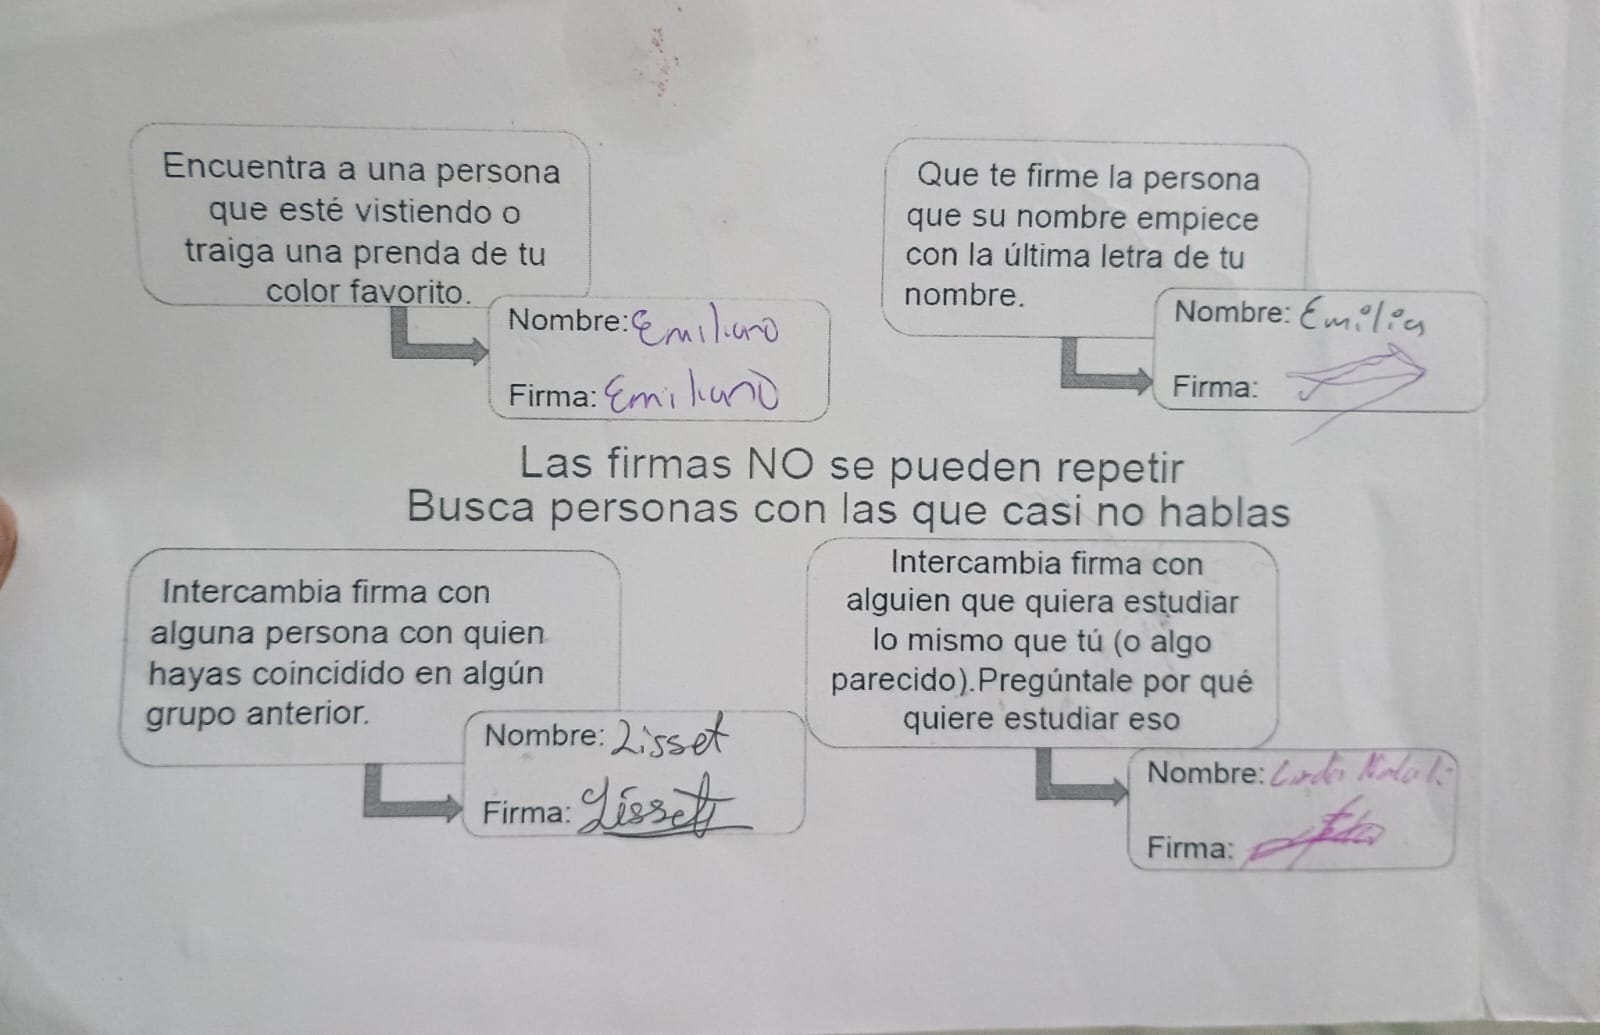 Encuentra a una persona
que esté vistiendo o
traiga una prenda de tu
color favorito.
Nombre: Emiliano
Firma: Emiliano
Que te firme la persona
que su nombre empiece
con la última letra de tu
nombre.
Nombre: Emilia
Firma:
Las firmas NO se pueden repetir
Busca personas con las que casi no hablas
Intercambia firma con
alguna persona con quien
hayas coincidido en algún
grupo anterior.
Nombre: Lisset
Firma: Lisset
Intercambia firma con
alguien que quiera estudiar
lo mismo que tú (o algo
parecido).Pregúntale por qué
quiere estudiar eso
Nombre:
Firma: